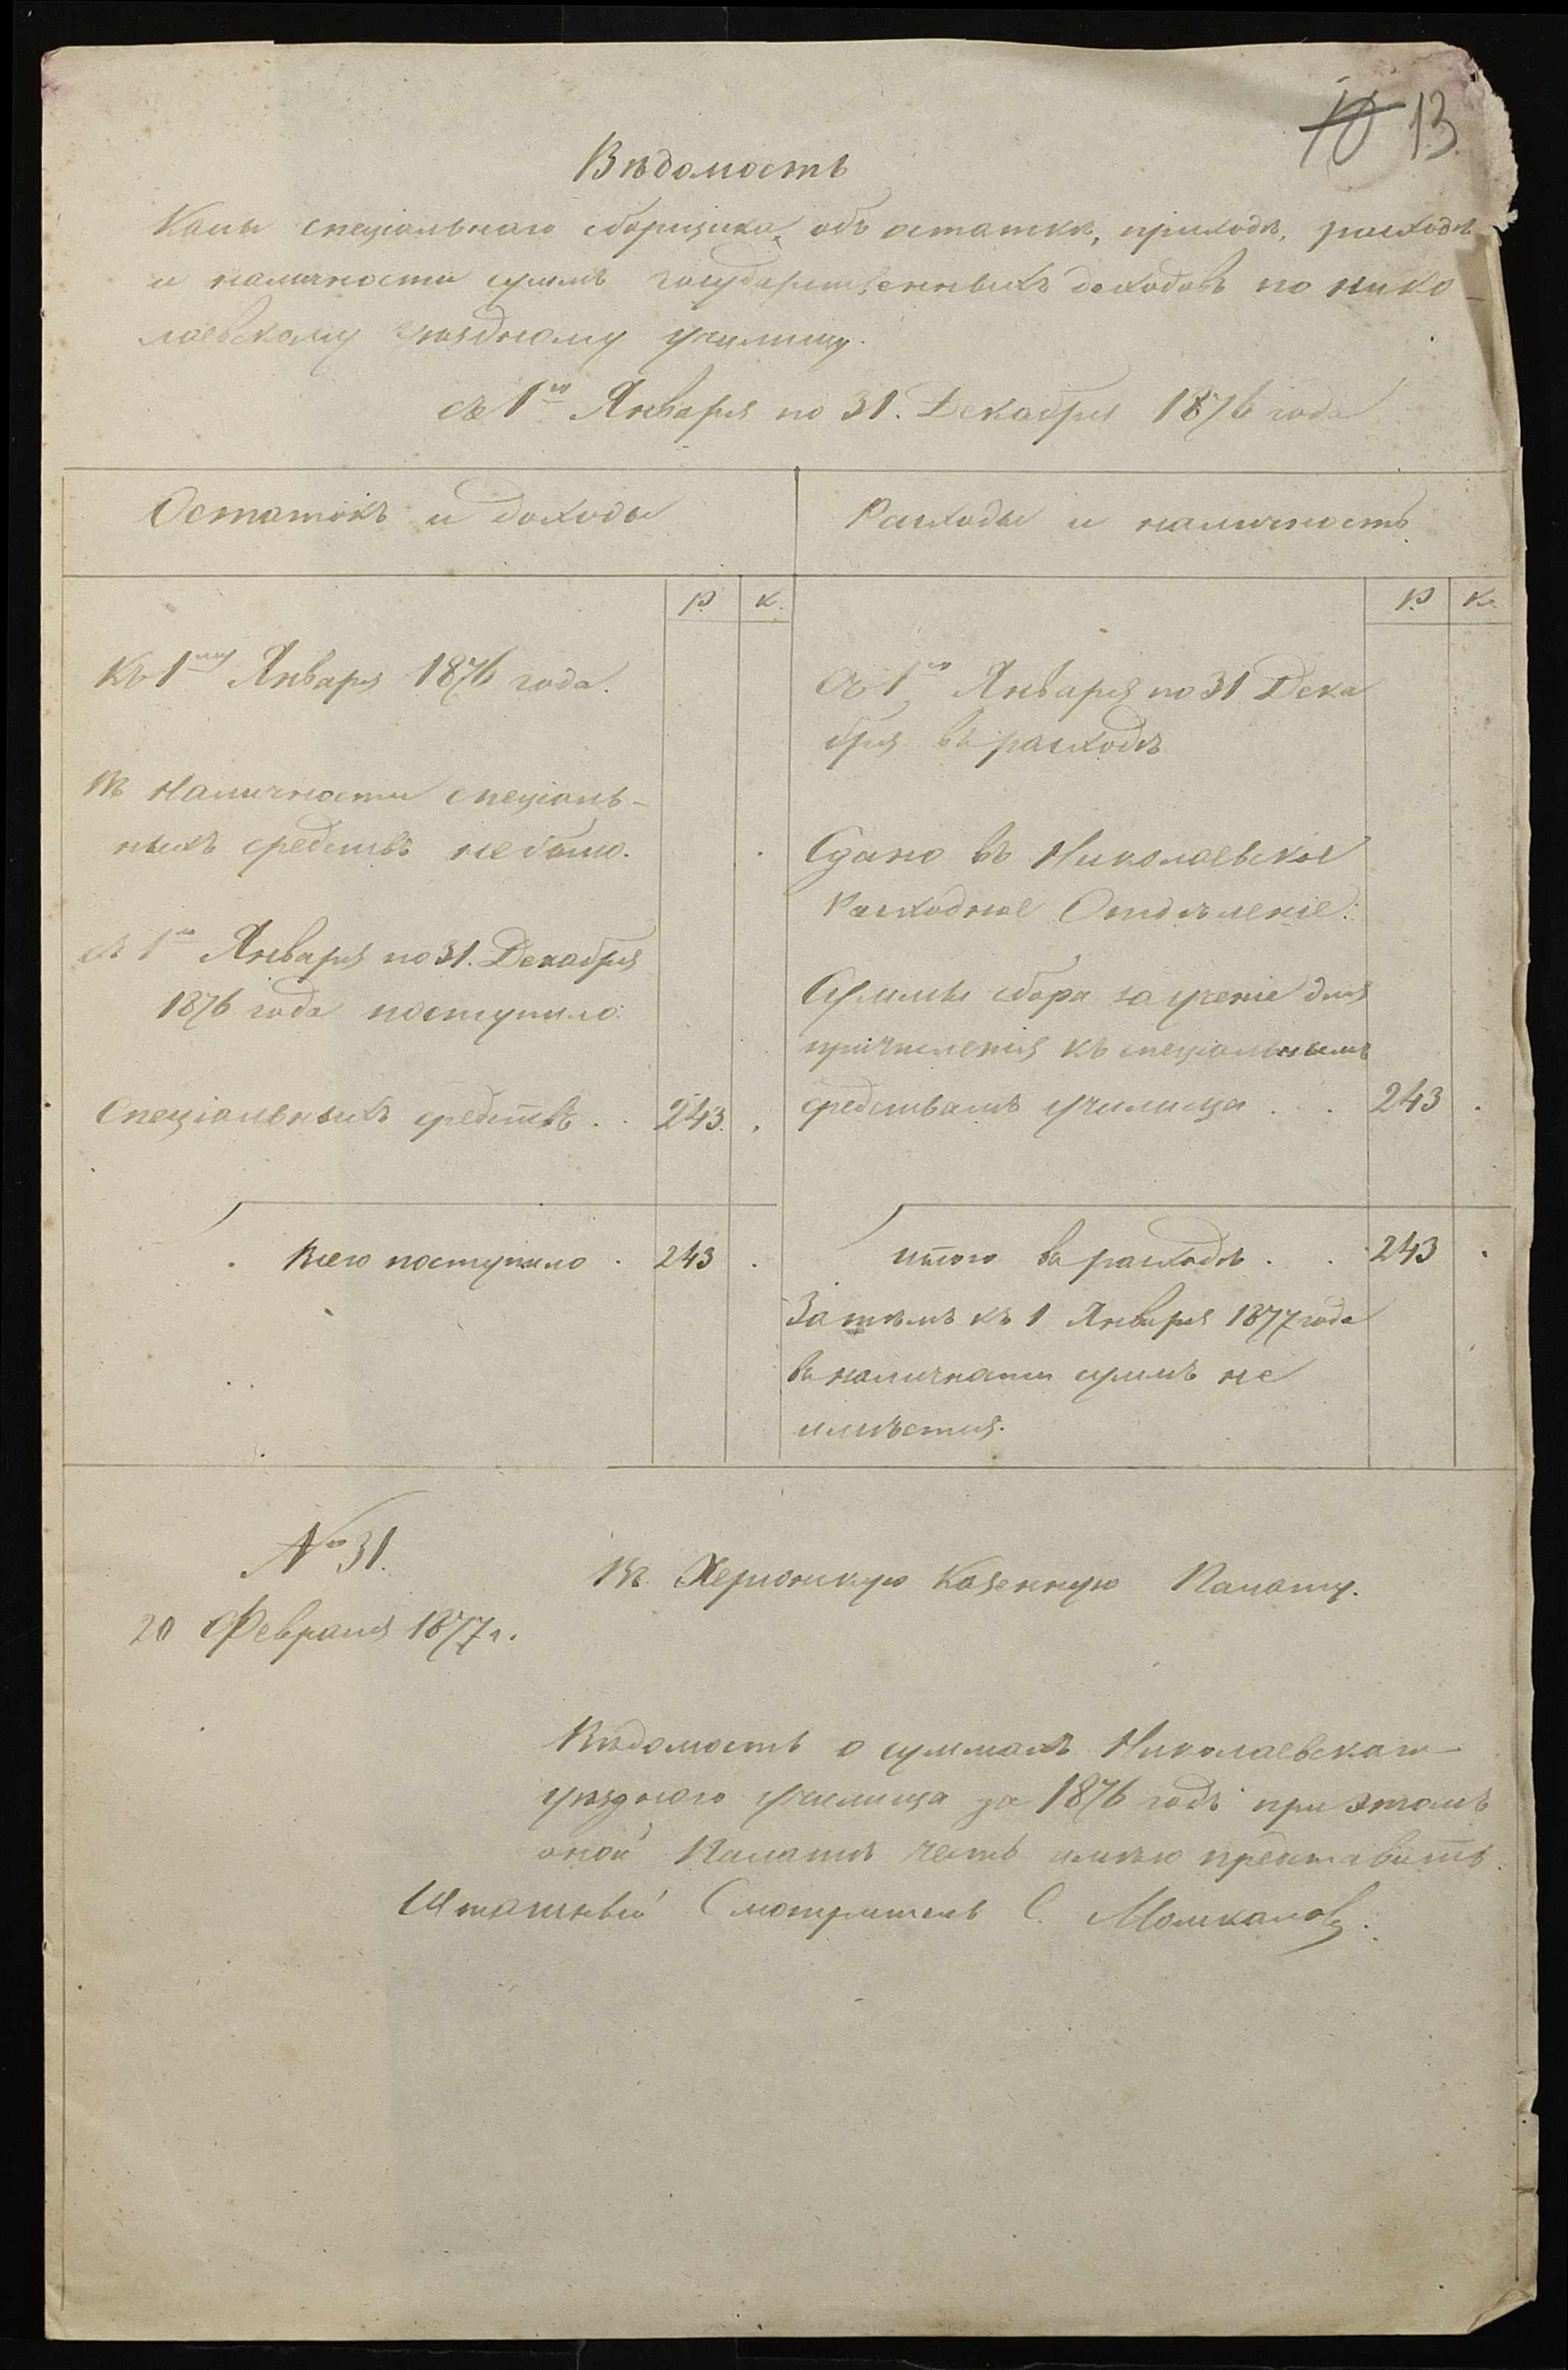 10 13
Вѣдомость
Кассы спеціальнаго сборщика, объ остаткѣ, приходѣ, расходѣ
и наличности суммъ государственныхъ доходовъ по Нико-
лаевскому уѣздному училищу.
съ 1го Января по 31. Декабря 1876 года
Остатокъ и доходы
Расходы и наличность
Р. К.
Къ 1му Января 1876 года.
Въ наличности спеціаль-
ныхъ средствъ не было.
съ 1го Января по 31. Декабря
1876 года поступило:
Спеціальныхъ средствъ . . 243. .
Всего поступило . 243 .
Р. К.
Съ 1го Января по 31 Дека
бря въ расходѣ
Сдано въ Николаевское
Расходное Отдѣленіе:
Суммы сбора за ученіе для
причисленія къ спеціальнымъ
средствамъ училища . . 243 .
итого въ расходѣ . . 243 .
За тѣмъ къ 1 Января 1877 года
въ наличности суммъ не
имѣется.
№ 31.
20 Февраля 1877 г.
Въ Херсонскую Казенную Палату.
Вѣдомость о суммахъ Николаевскаго
уѣзднаго училища за 1876 годъ при этомъ
оной Палатѣ честь имѣю представить.
Штатный Смотритель С.